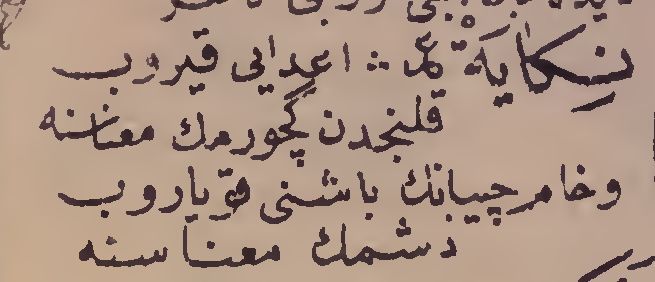 نِكَايَةْ عمـ : اعدايى قيروب
قلنجدن كچورمك معناسنه
وخام چيبانك باشنى قوپاروب
دشمك معناسنه